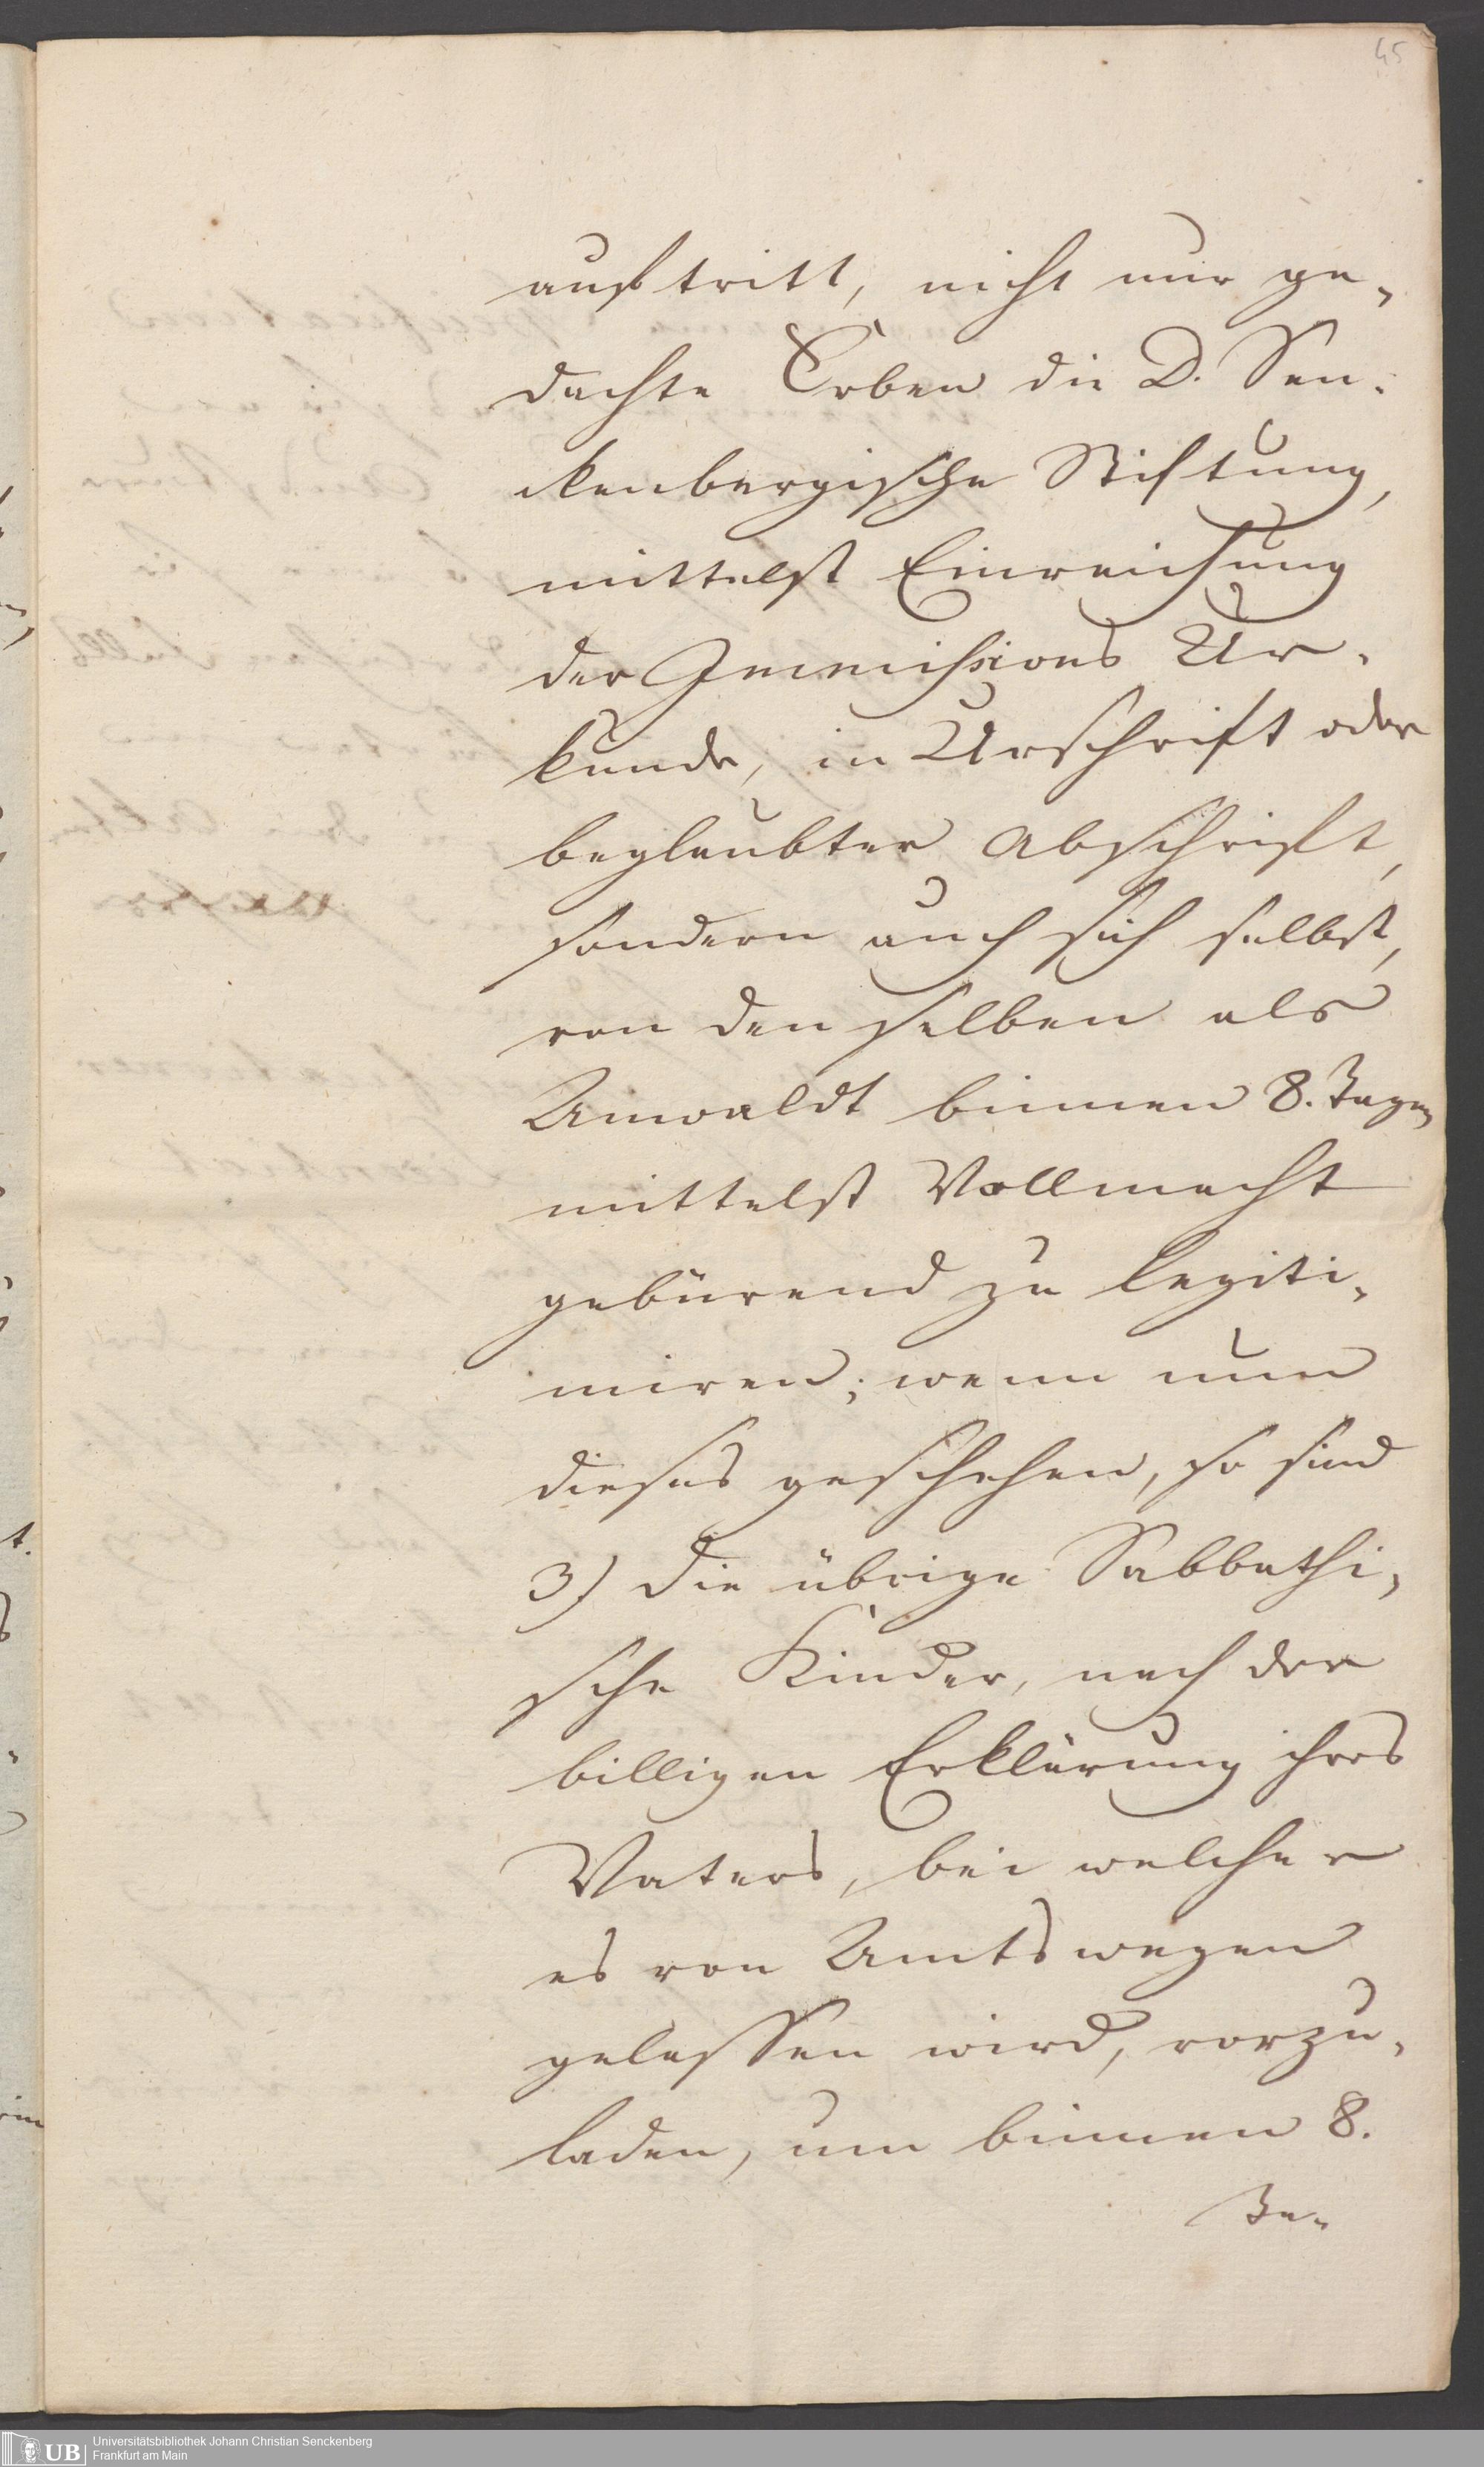 45
auftritt, nicht nur ge-
dachte Erben die D. Sen-
ckenbergische Stiftung,
mittelst Einreichung
der Immissions Ur-
kunde, in Urschrift oder
beglaubter Abschrift,
sondern auch sich selbst,
von denselben als
Anwaldt binnen 8. Tagen
mittelst Vollmacht
gebürend zu legiti-
miren; wenn nun
dieses geschehen, so sind
3) die übrige Sabbathi-
sche Kinder, nach der
billigen Erklärung ihres
Vaters, bei welcher
es von Amtswegen
gelassen wird, vorzu-
laden, um binnen 8.
Ta-
UB
Universitätsbibliothek Johann Christian Senckenberg
Frankfurt am Main